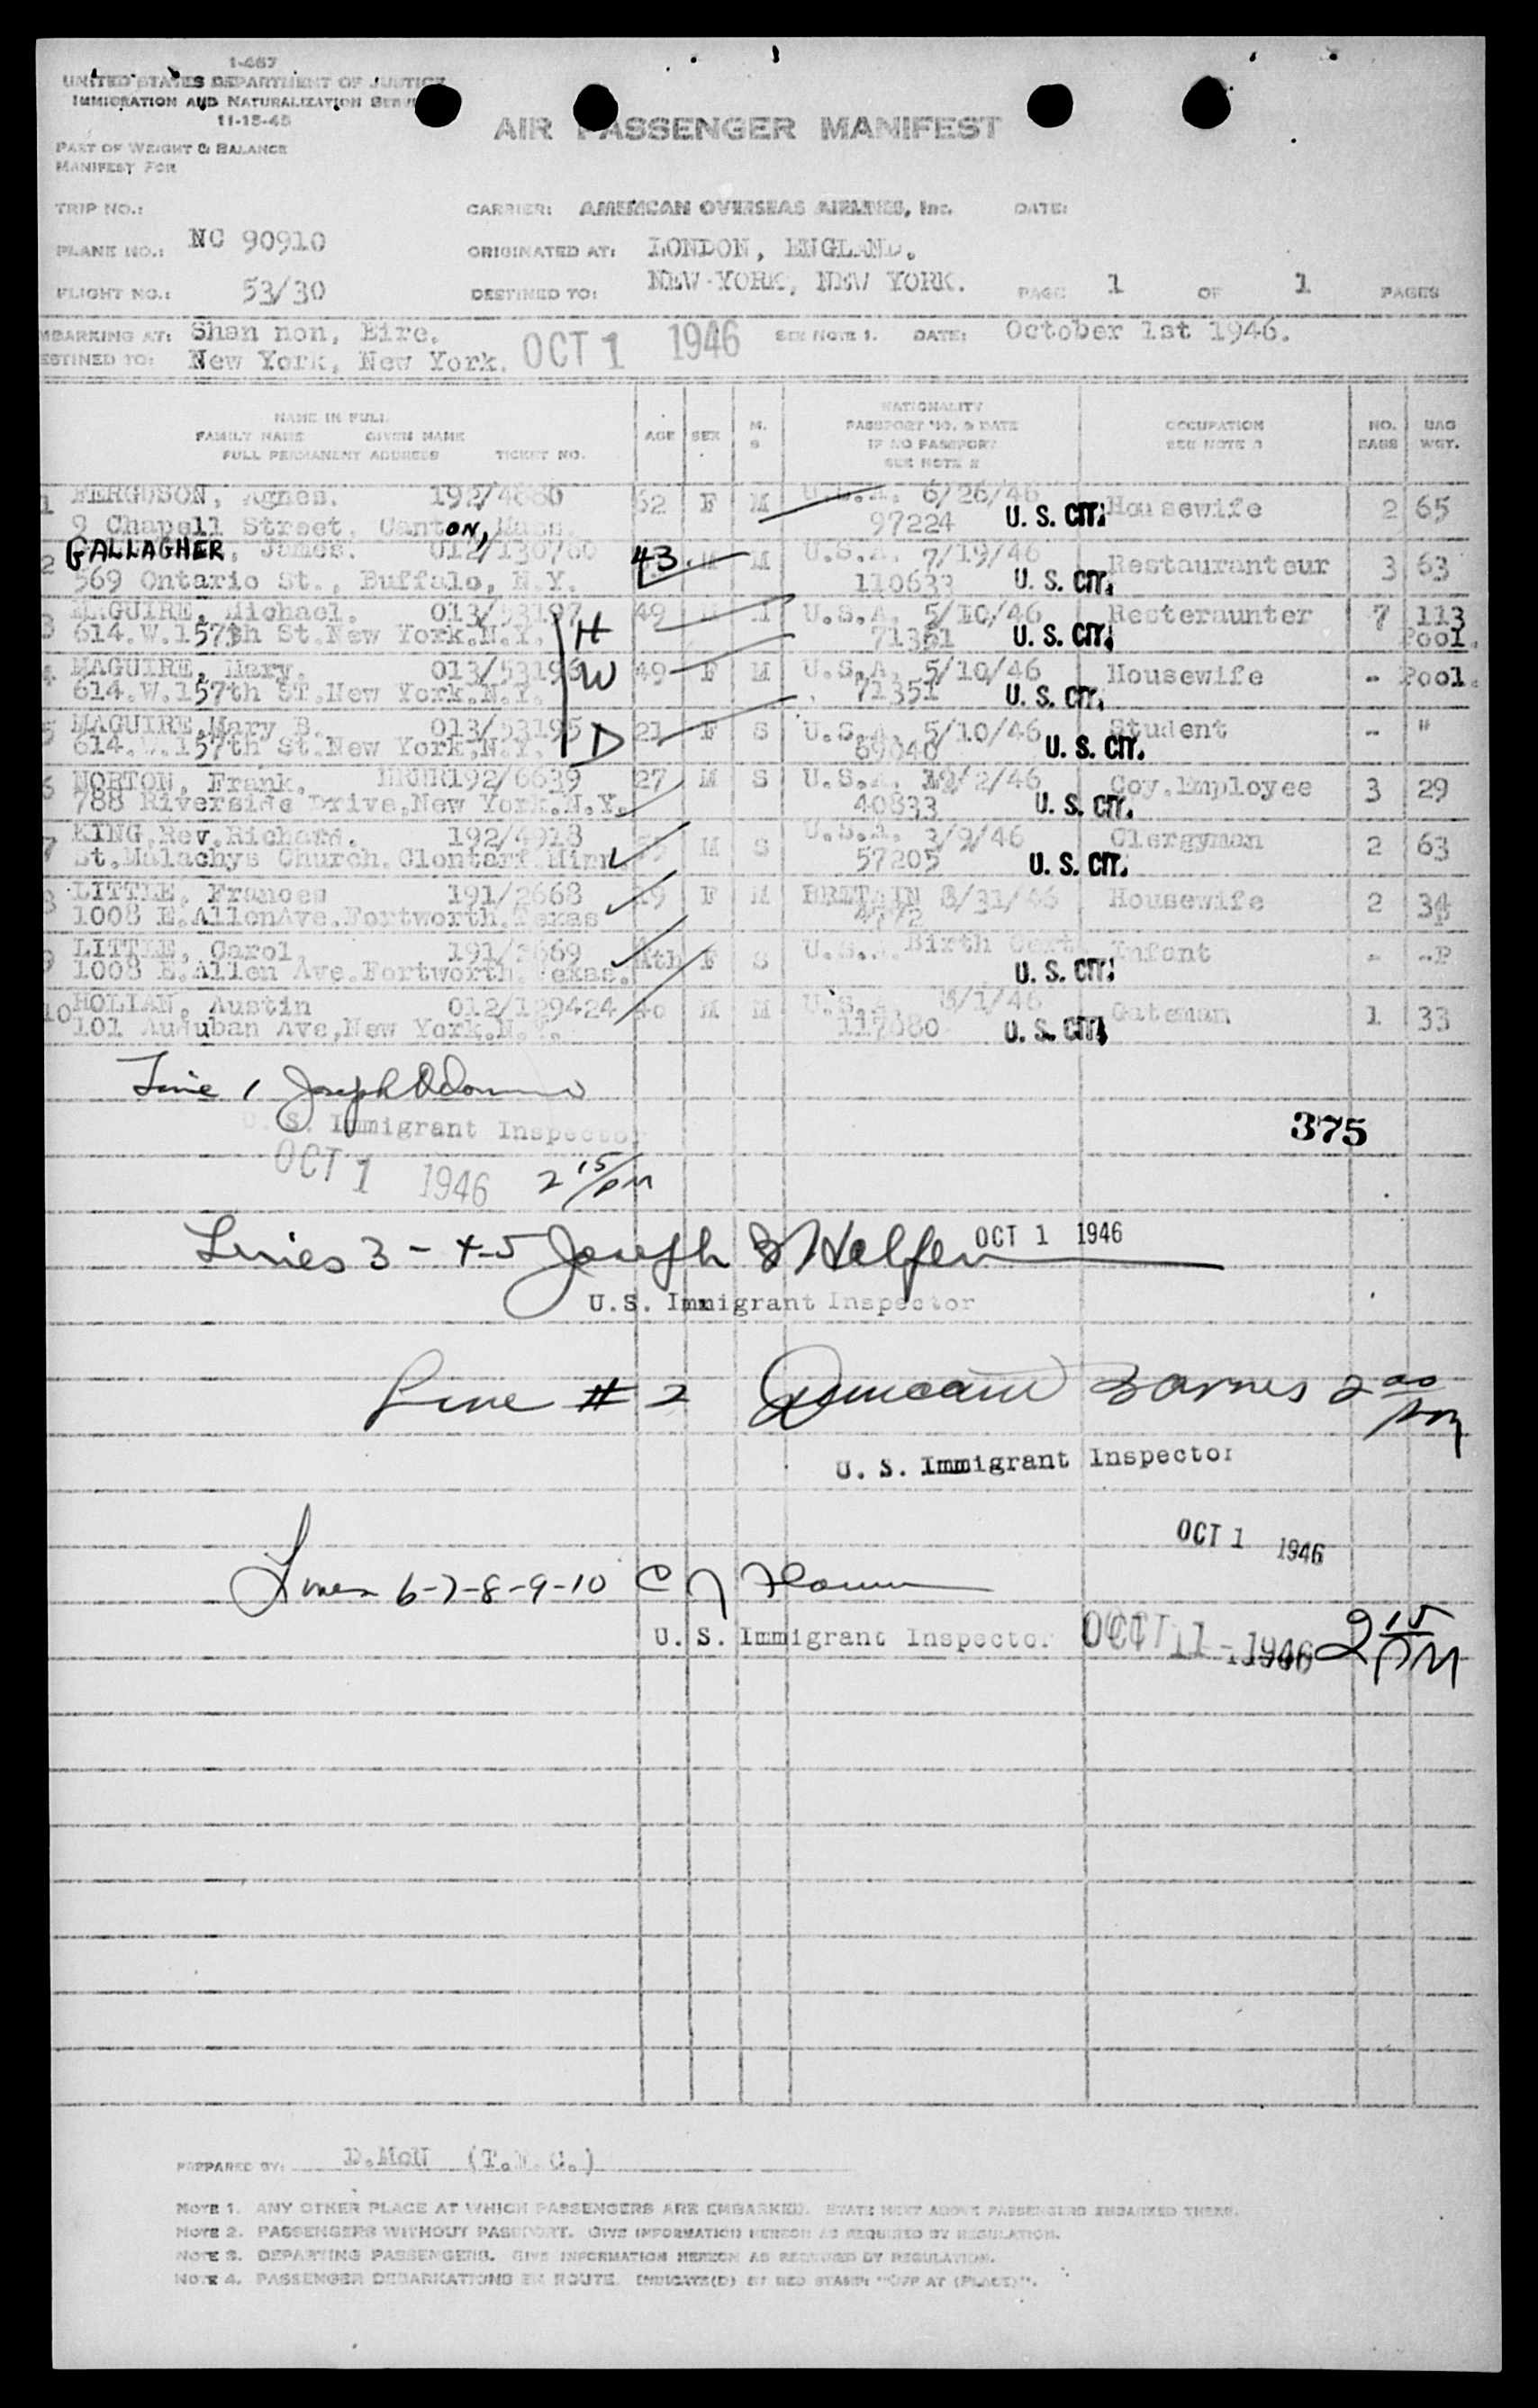 1-467
UNITED STATES DEPARTMENT OF JUSTICE
IMMIGRATION AND NATURALIZATION
11-15-45
AIR PASSENGER MANIFEST
PART OF WEIGHT & BALANCE
MANIFEST FOR
TRIP NO.: CARRIER: AMERICAN OVERSEAS AIRLINES, Inc. DATE:
PLANE NO.: NC 90910 ORIGINATED AT: LONDON, ENGLAND.
FLIGHT NO.: 53/30 DESTINED TO: NEW-YORK, NEW YORK. PAGE 1 OF 1 PAGES
MBARKING AT: Shan non, Eire. OCT 1 1946 SEE NOTE 1. DATE: October 1st 1946.
ESTINED TO: New York, New York.
NAME IN FULL
FAMILY NAME GIVEN NAME
FULL PERMANENT ADDRESS TICKET NO.
AGE SEX M. S NATIONALITY PASSPORT NO. & DATE IF NO PASSPORT SEE NOTE 2 OCCUPATION SEE NOTE 3 NO. BAGS BAG WGT.
1 FERGUSON, Agnes. 192/4680 52 F M U.S.A. 6/26/46 Housewife 2 65
9 Chapell Street, CantON, Mass. 97224 U. S. CIT.
2 GALLAGHER, James. 012/130760 43. M M U.S.A. 7/19/46 Restauranteur 3 63
569 Ontario St., Buffalo, N.Y. 110633 U. S. CIT.
3 MAGUIRE, Michael. 013/53197 H 49 M M U.S.A. 5/10/46 Resteraunter 7 113
614.W.157th St.New York.N.Y. 71351 U. S. CIT. Pool.
4 MAGUIRE, Mary. 013/53196 W 49 F M U.S.A. 5/10/46 Housewife - Pool.
614.W.157th ST.New York.N.Y. 71351 U. S. CIT.
5 MAGUIRE,Mary B. 013/53195 D 21 F S U.S.A. 5/10/46 Student - "
614.W.157th St.New York,N.Y. 69040 U. S. CIT.
6 NORTON, Frank. 192/6639 27 M S U.S.A. 2/46 Coy.Employee 3 29
788 Riverside Drive,New York.N.Y. 40833 U. S. CIT.
7 KING,Rev.Richard. 192/4918 M S U.S.A. 3/9/46 Clergyman 2 63
St.Malachys Church.Clontarf.Minn. 57205 U. S. CIT.
8 LITTLE, Frances 191/2668 19 F M BRITAIN 8/31/46 Housewife 2 34
1008 E.AllenAve.Fortworth.Texas 4772
9 LITTLE, Carol 191/2669 4th F S U.S.A. Birth Cert. Infant - -P
1008 E.Allen Ave.Fortworth.Texas. U. S. CIT.
10 HOLIAN, Austin 012/129424 40 M M U.S.A. 8/1/46 Gateman 1 33
101 Auduban Ave,New York.N.Y. 117080 U. S. CIT.
Line 1 Joseph
U. S. Immigrant Inspector
375
OCT 1 1946 2 15/PM
Lines 3 - 4-5 Joseph Halfen OCT 1 1946
U.S. Immigrant Inspector
Line # 2 Duncan Barnes 2 00/PM
U. S. Immigrant Inspector
OCT 1 1946
Lines 6-7-8-9-10 C J
U. S. Immigrant Inspector OCT 1 - 1946 2 15/PM
PREPARED BY: D.McN
NOTE 1. ANY OTHER PLACE AT WHICH PASSENGERS ARE EMBARKED. STATE NEXT ABOVE PASSENGERS EMBARKED THERE.
NOTE 2. PASSENGERS WITHOUT PASSPORT. GIVE INFORMATION HEREON AS REQUIRED BY REGULATION.
NOTE 3. DEPARTING PASSENGERS. GIVE INFORMATION HEREON AS REQUIRED BY REGULATION.
NOTE 4. PASSENGER DEBARKATIONS EN ROUTE. INDICATE(D) BY RED STAMP: "OFF AT (PLACE)".